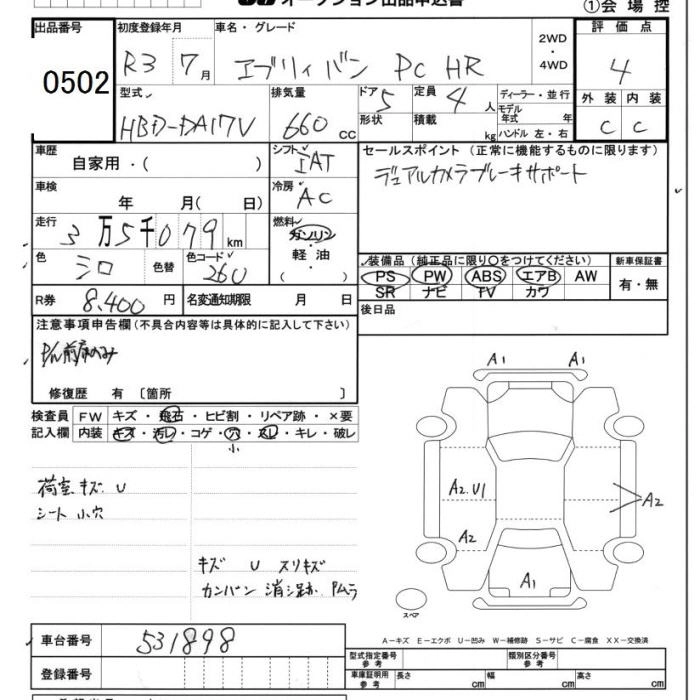 オークション出品申込書
①会場控
出品番号 初度登録年月 車名・グレード 評価点
0502 R3 7月 エブリィバン PC HR 2WD・4WD 4
型式 排気量 ドア 定員 ディーラー・並行 外装 内装
HBD-DA17V 660cc 5 4人 モデル年式 年 C C
形状 積載 kg ハンドル 左・右
車歴 シフト セールスポイント (正常に機能するものに限ります)
自家用・( ) IAT デュアルカメラブレーキサポート
車検 冷房
年 月( 日) AC
走行 燃料
3万5千079km ガソリン
軽油
( )
色 色替 色コード 装備品 (純正品に限り○をつけてください) 新車保証書
シロ 26U PS PW ABS エアB AW 有・無
SR ナビ TV カワ
R券 8,400円 名変通知期限 月 日 後日品
注意事項申告欄(不具合内容等は具体的に記入して下さい)
P/W前席のみ
修復歴 有 〔箇所 〕
検査員 FW キズ・飛石・ヒビ割・リペア跡・×要
記入欄 内装 キズ・汚レ・コゲ・穴・スレ・キレ・破レ
小
荷室 キズ U
シート 小穴
キズ U スリキズ
カンバン消し跡 Pムラ
A1 A1
A2.U1
A2
A2
A1
スペア
A−キズ E−エクボ U−凹み W−補修跡 S−サビ C−腐食 XX−交換済
車台番号 531898
登録番号
型式指定番号 参考 類別区分番号 参考
車庫証明用 参考 長さ cm 幅 cm 高さ cm